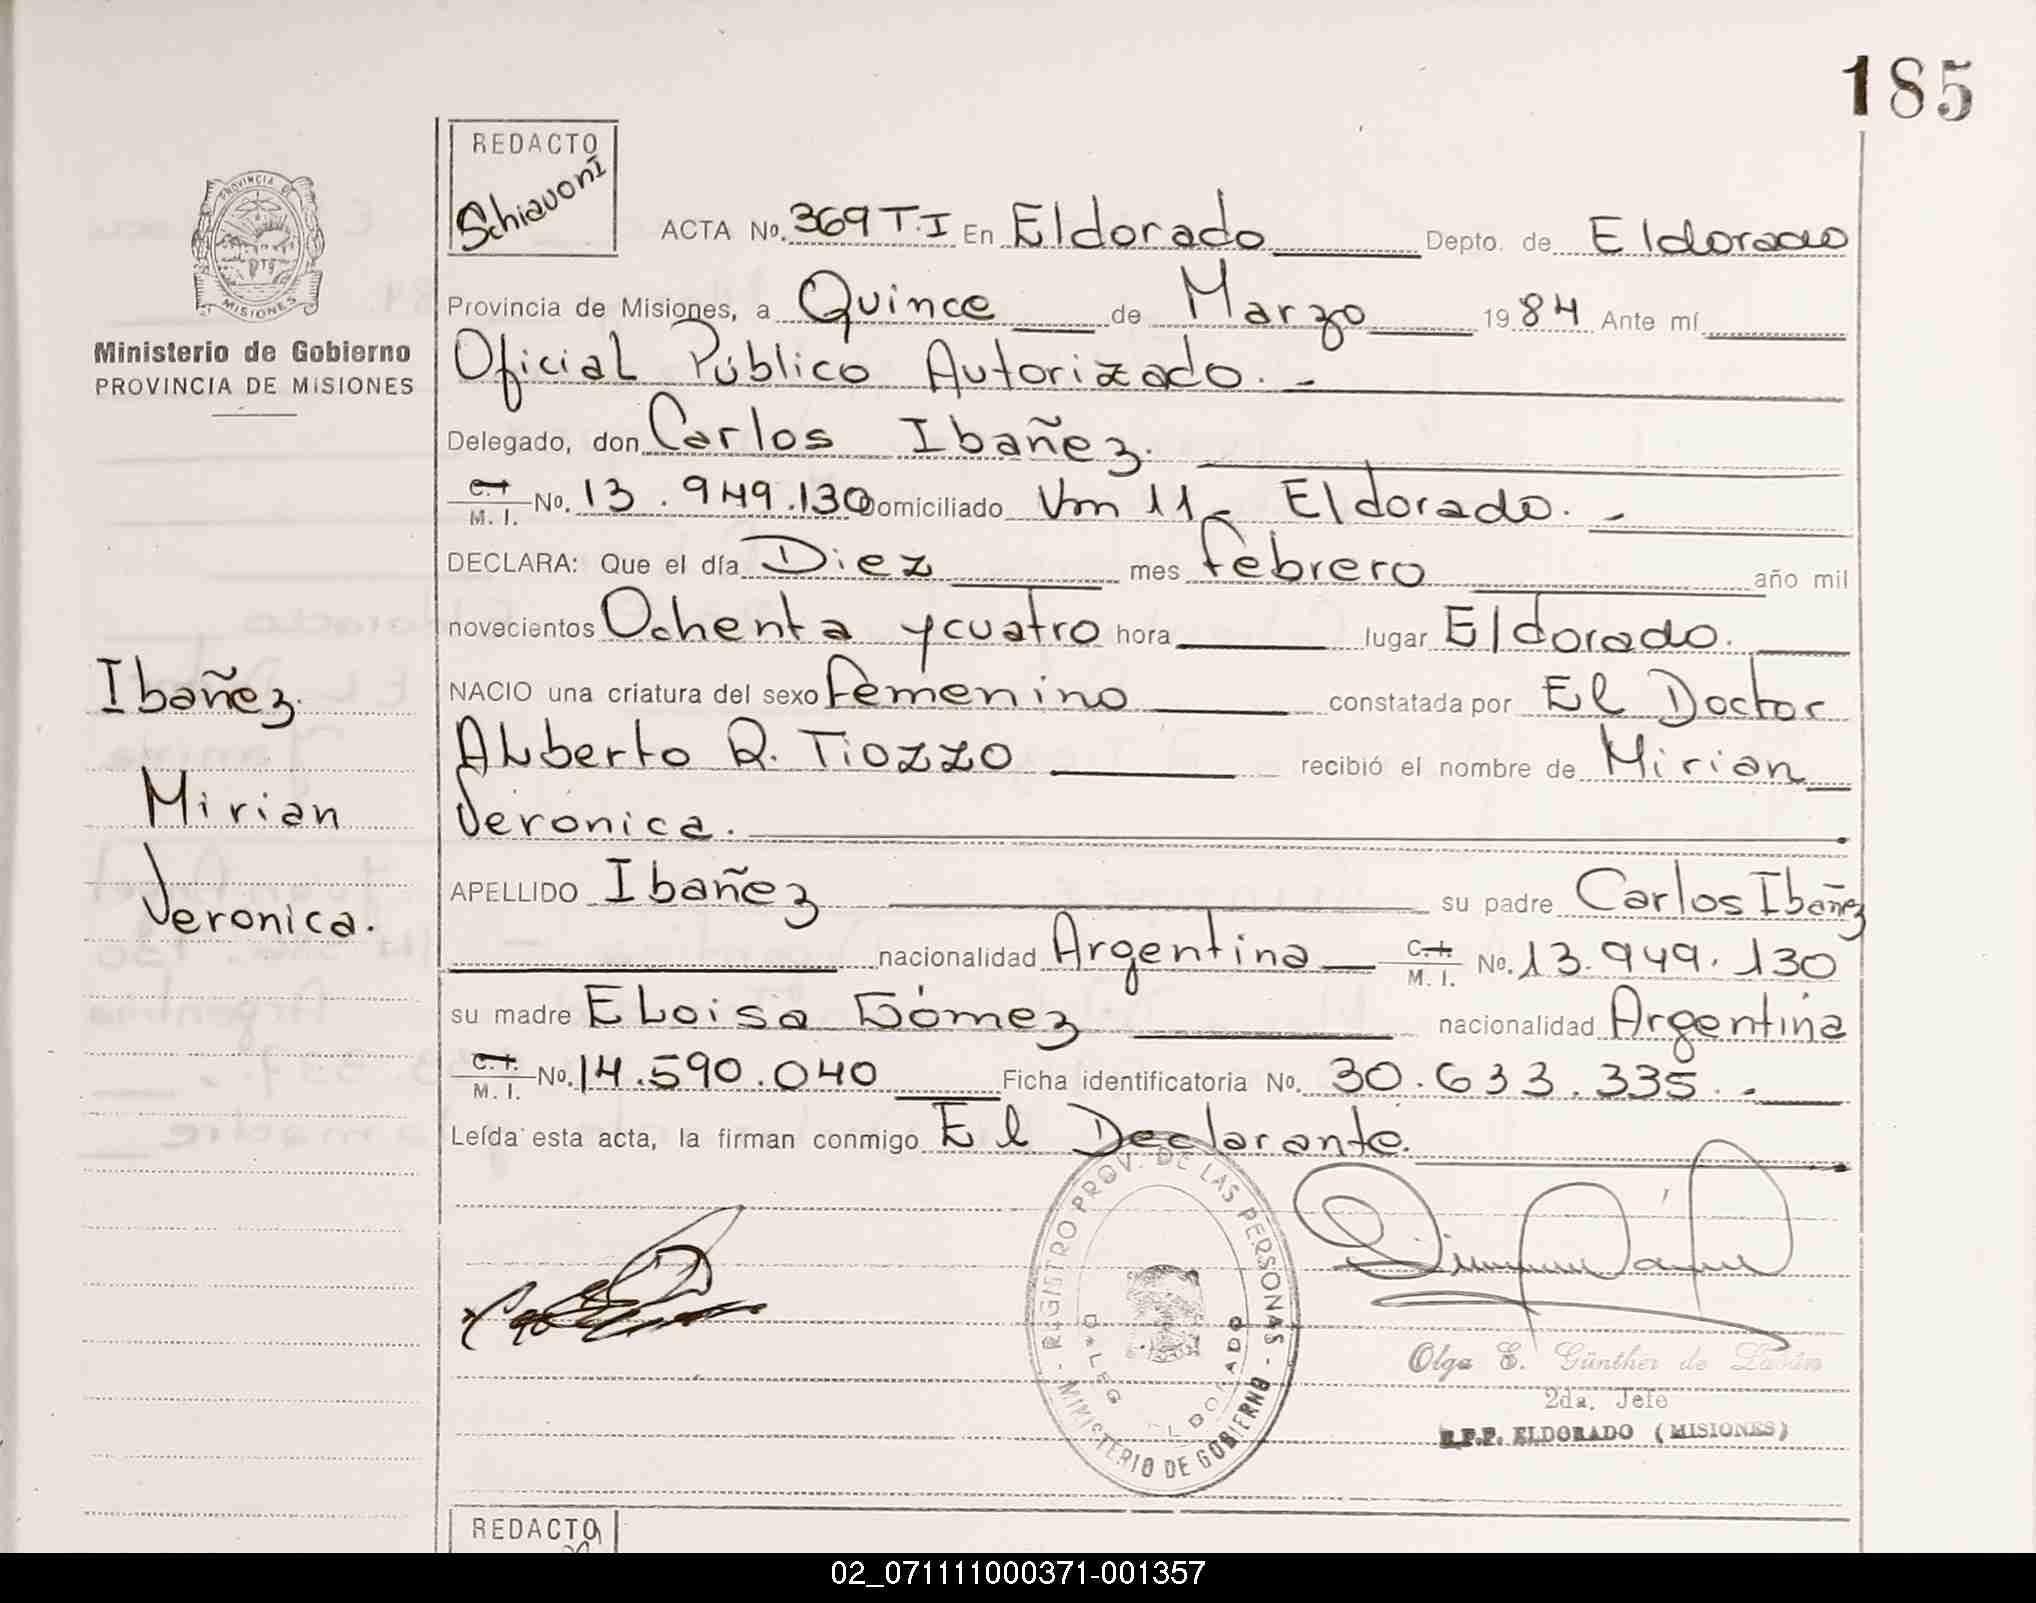 185
REDACTO
Schiavoni
ACTA No. 369 T.I En Eldorado Depto. de Eldorado
PROVINCIA DE
MISIONES
Provincia de Misiones, a Quince de Marzo 1984 Ante mí
Ministerio de Gobierno
PROVINCIA DE MISIONES
Oficial Público Autorizado. -
Delegado, don Carlos Ibañez.
C.I. M. I. No. 13.949.130 Domiciliado Vm 11 - Eldorado. -
DECLARA: Que el día Diez mes febrero año mil
novecientos Ochenta y cuatro hora lugar Eldorado.
Ibañez.
Mirian
Veronica.
NACIO una criatura del sexo femenino constatada por El Doctor
Alberto R. Tiozzo recibió el nombre de Mirian
Veronica.
APELLIDO Ibañez su padre Carlos Ibañez
nacionalidad Argentina C.I. M. I. No. 13.949.130
su madre Eloisa Gómez nacionalidad Argentina
C.I. M. I. No. 14.590.040 Ficha identificatoria No. 30.633.335. -
Leída esta acta, la firman conmigo El Declarante.
REGISTRO PROV. DE LAS PERSONAS - MINISTERIO DE GOBIERNO -
DELEG ELDORADO
Olga E. Günther de
2da. Jefe
R.P.P. ELDORADO (MISIONES)
REDACTO
02_071111000371-001357